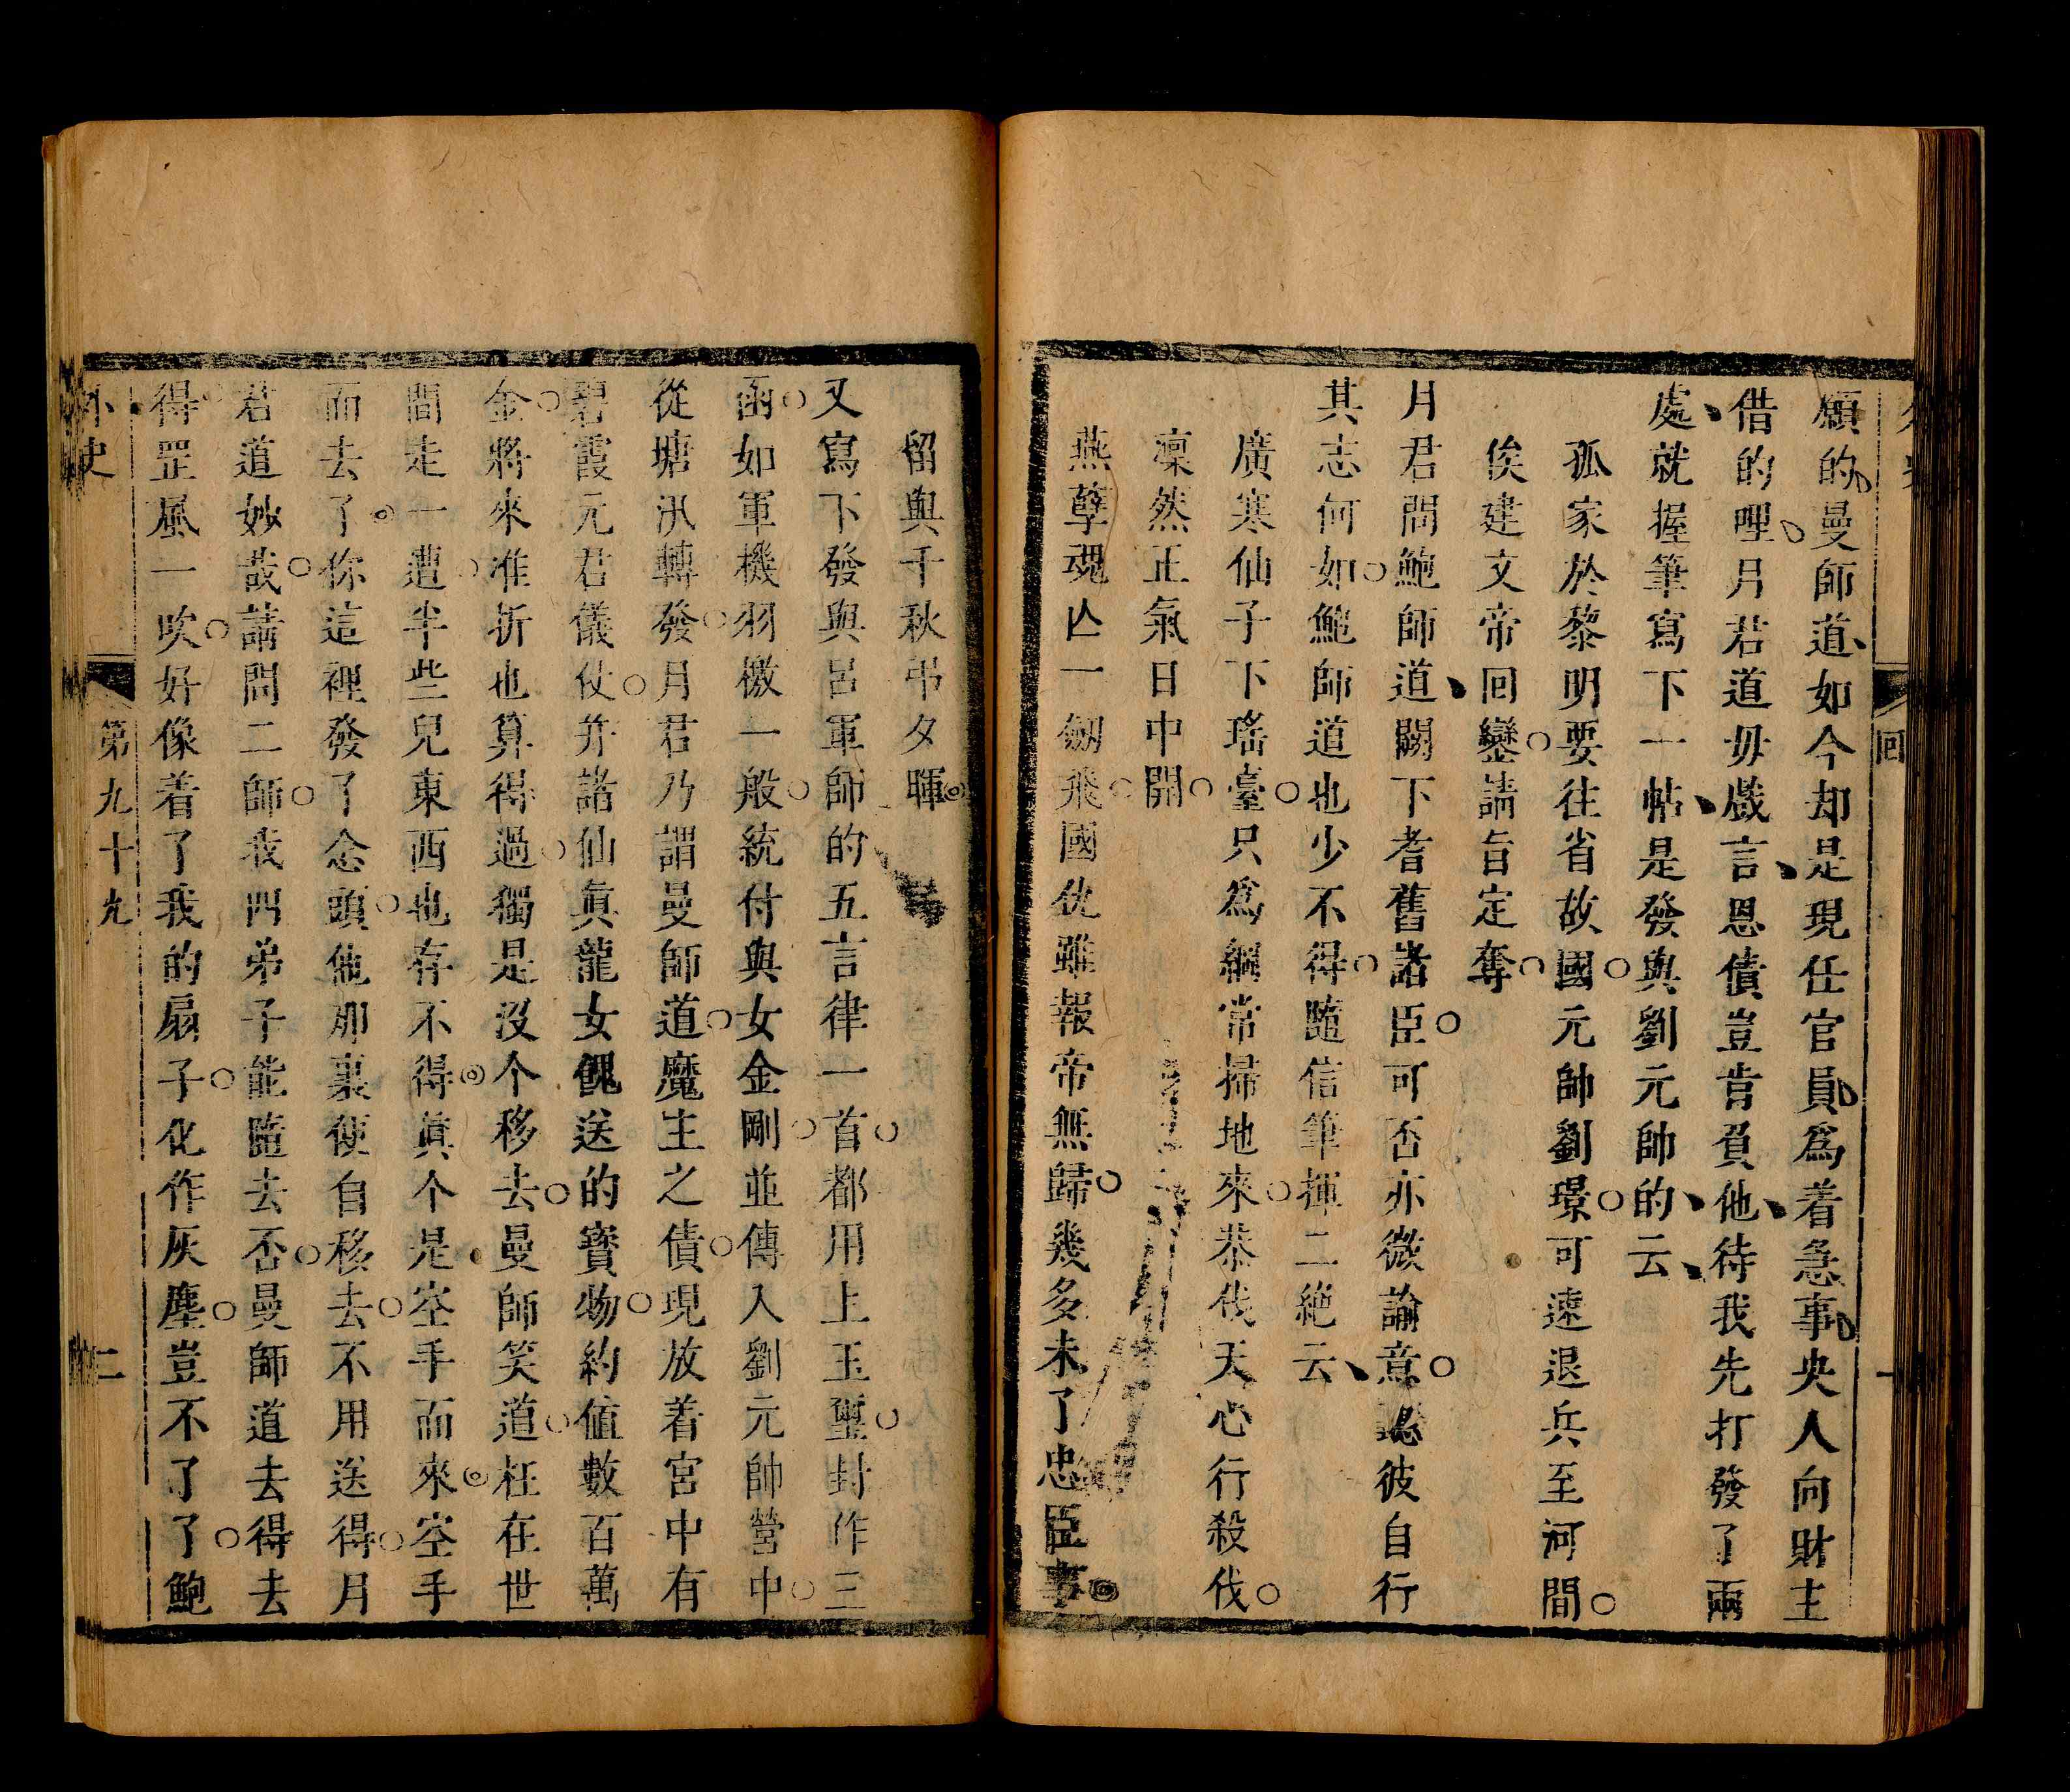 願的曼師道如今却是現任官員爲着急事央人向財主
借的哩月君道毋戲言恩債豈肯負他待我先打發了兩
處就握筆寫下一帖是發與劉元帥的云
孤家於黎明要往省故國元帥劉璟可遠退兵至河間
俟建文帝回鑾請旨定奪
月君問鮑師道闕下耆舊諸臣可否亦微諭意鮑彼自行
其志何如鮑師道也少不得隨信筆揮二絶云
廣寒仙子下瑤臺只爲綱常掃地來恭伐天心行殺伐
凜然正氣日中開
燕孽魂亾一劒飛國仇雖報帝無歸幾多未了忠臣事
留與千秋弔夕暉
又寫下發與呂軍師的五言律一首都用上玉璽封作三
函如軍機羽檄一般統付與女金剛並傳入劉元帥營中
從塘汛轉發月君乃謂曼師道魔主之債現放着宮中有
碧霞元君儀仗并諸仙眞龍女餽送的寶物約值數百萬
金將來准折也算得過獨是沒个移去曼師笑道枉在世
間走一遭半些兒東西也存不得眞个是空手而來空手
而去了你這裡發了念頭他那裏便自移去不用送得月
君道妙哉請問二師我四弟子能隨去否曼師道去得去
得罡風一吹好像着了我的扇子化作灰塵豈不了了鮑
外史
第九十九
二
回